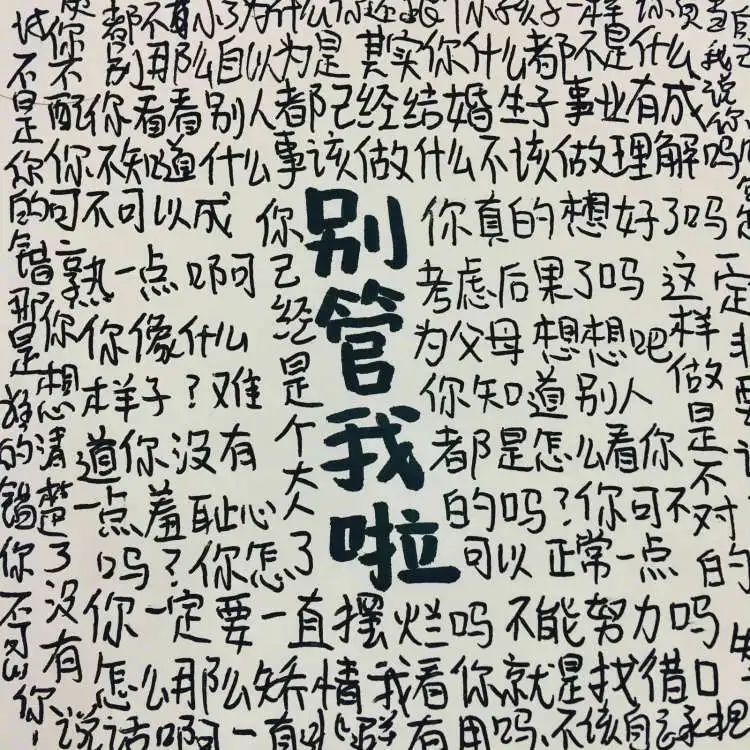 都不
不 别那么自以为是 其实你什么都不是什么
配你看看别人都已经结婚生子事业有成
你不知道什么事该做什么不该做理解吗
可不可以成
熟一点啊可
你你像什么
样子？难
道你没有
一点羞耻心
吗？你怎了
你已经是个大人
别管我啦
你真的想好了吗
考虑后果了吗
为父母想想吧
你知道别人
都是怎么看你
的吗？你可不
可以正常一点
这样做是不对的
一定
不是你的错那是
的错你
想清楚了没有
你一定要一直摆烂吗不能努力吗
怎么那么矫情我看你就是找借口
说话啊
有用吗 不该自
我说你